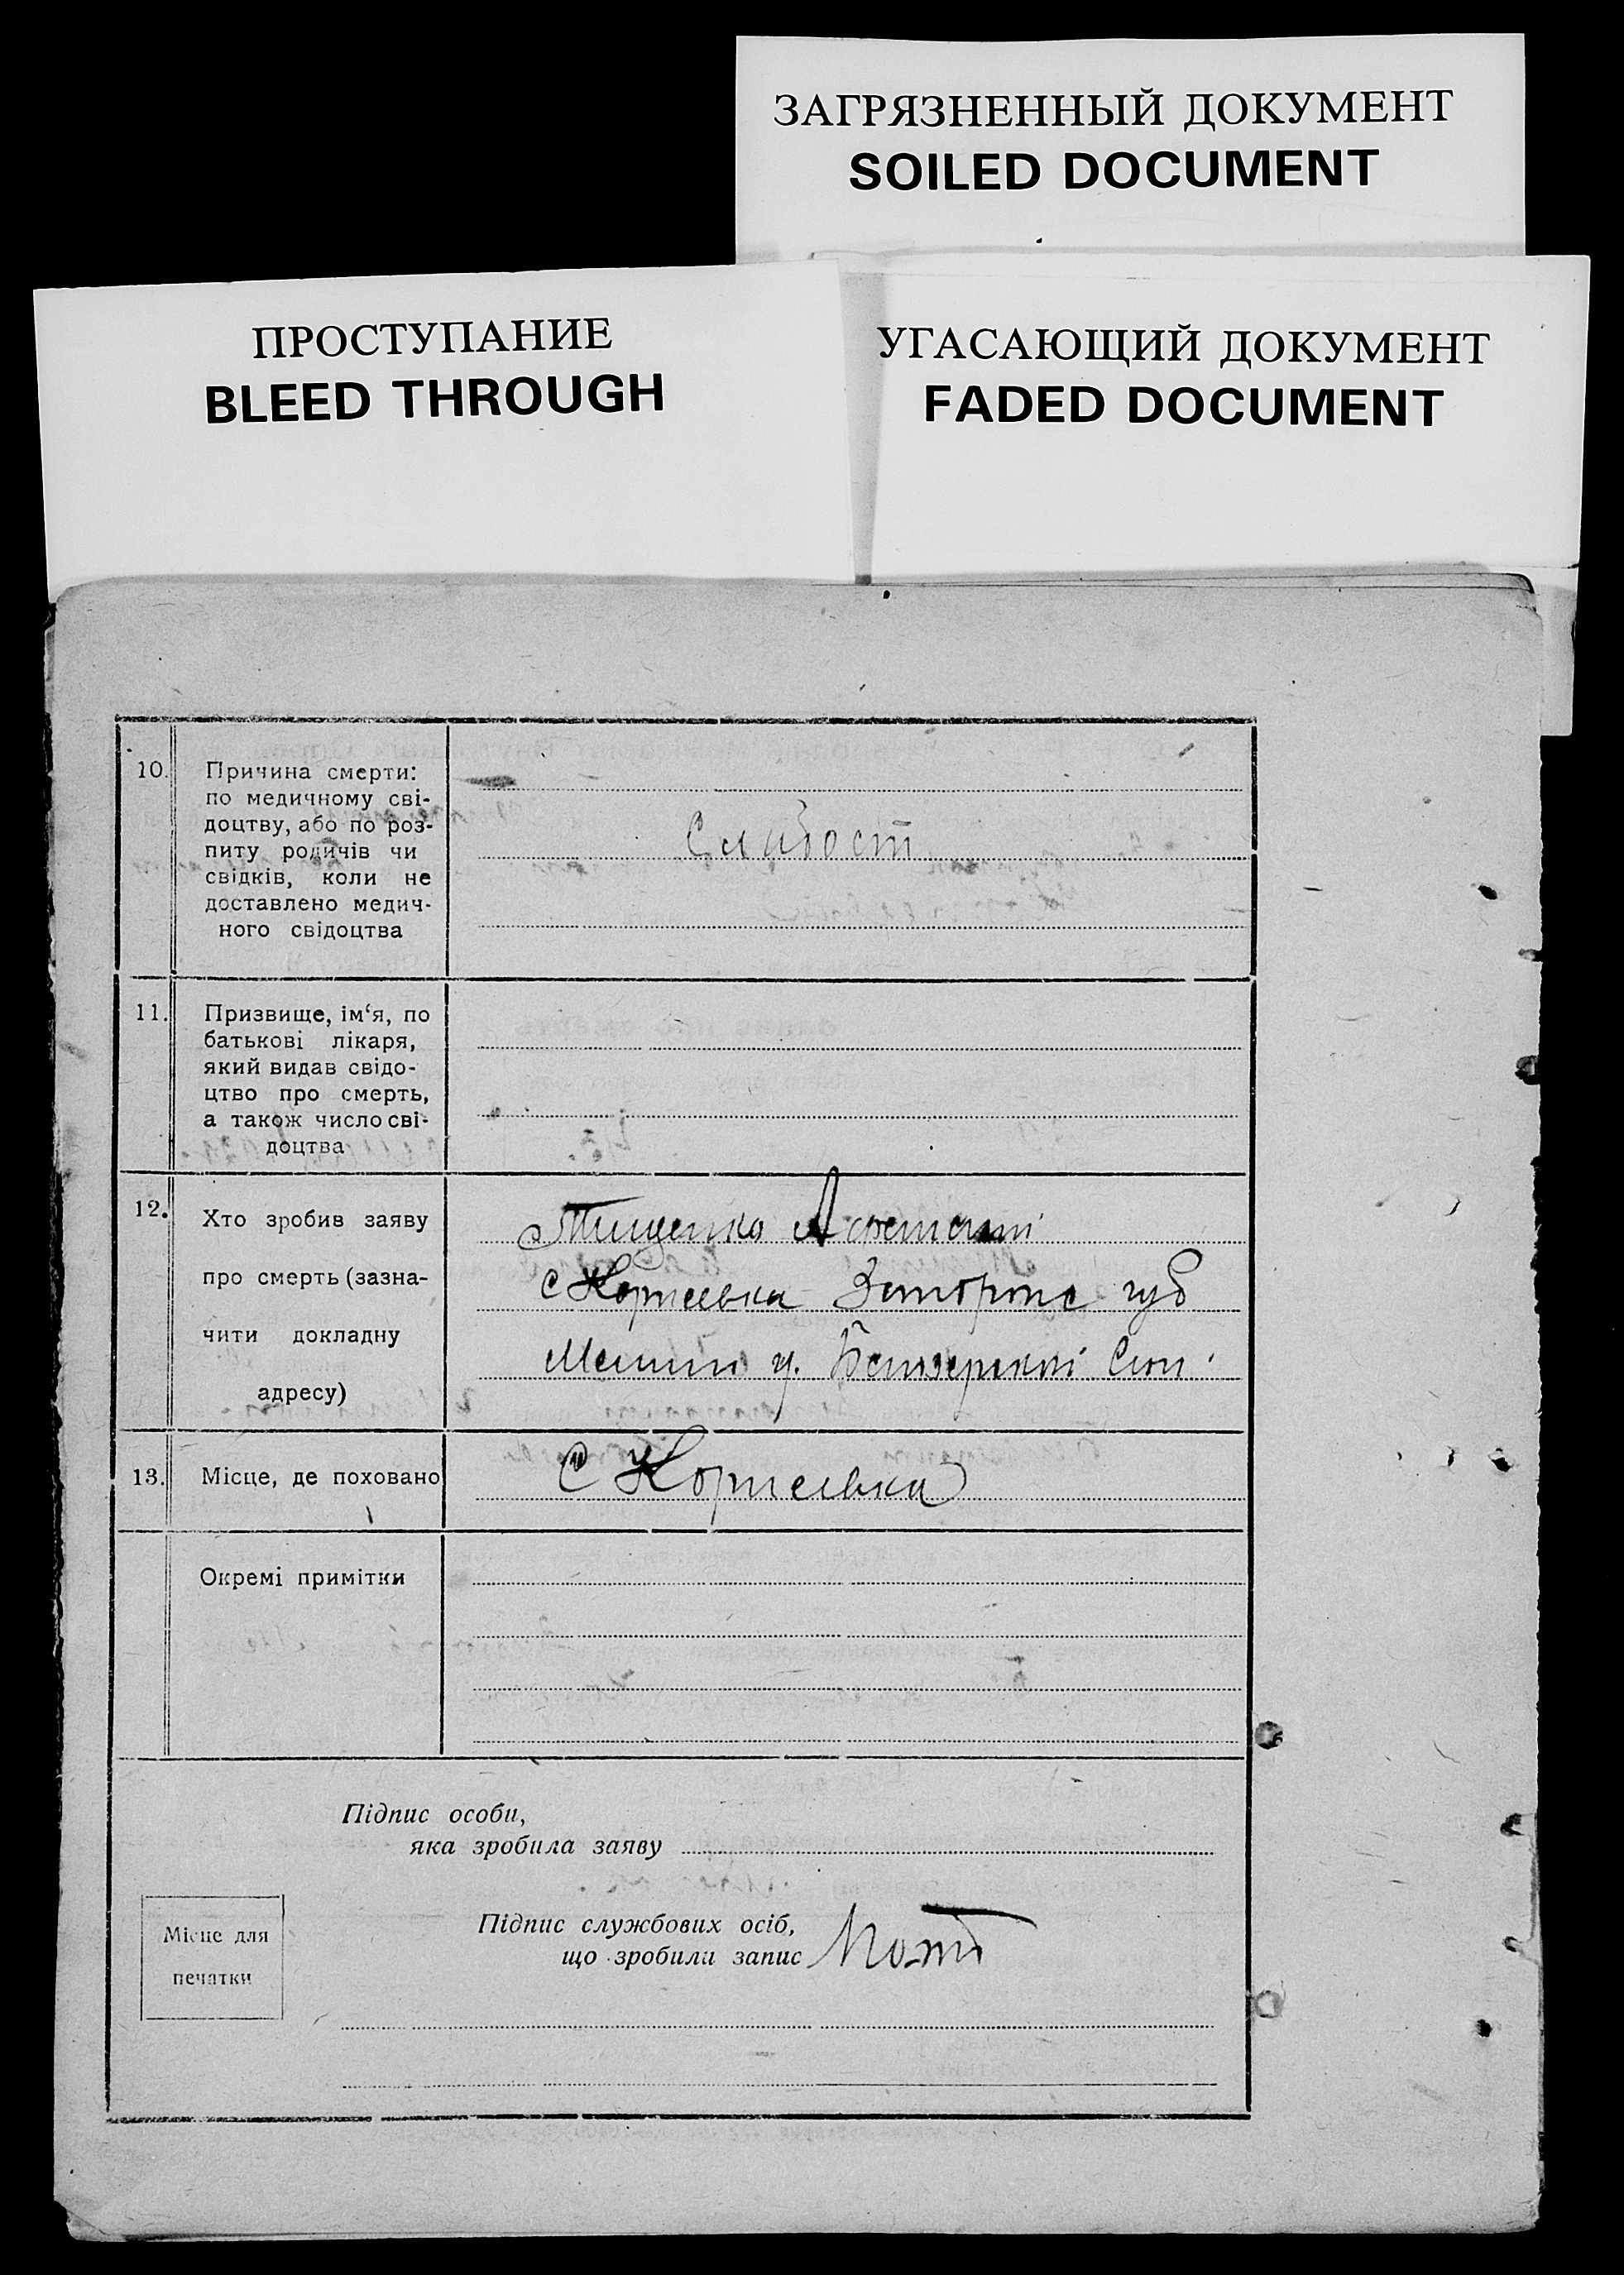 ЗАГРЯЗНЕННЫЙ ДОКУМЕНТ
SOILED DOCUMENT
ПРОСТУПАНИЕ
BLEED THROUGH
УГАСАЮЩИЙ ДОКУМЕНТ
FADED DOCUMENT
10. Причина смерти:
по медичному сві-
доцтву, або по роз-
питу родичів чи
свідків, коли не
доставлено медич-
ного свідоцтва
Слабост
11. Призвище, ім‘я, по
батькові лікаря,
який видав свідо-
цтво про смерть,
а також число сві-
доцтва
12. Хто зробив заяву
про смерть (зазна-
чити докладну
адресу)
Тищенко
с Корнеевка губ
у.
13. Місце, де поховано
с Корнеевка
Окремі примітки
Підпис особи,
яка зробила заяву
Місце для
печатки
Підпис службових осіб,
що зробили запис